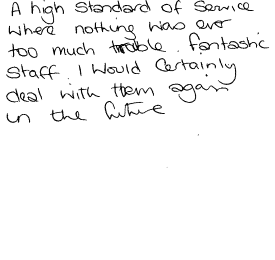 A high standard of service
where nothing was ever
too much trouble. fantastic
staff. I would certainly
deal with them again
in the future